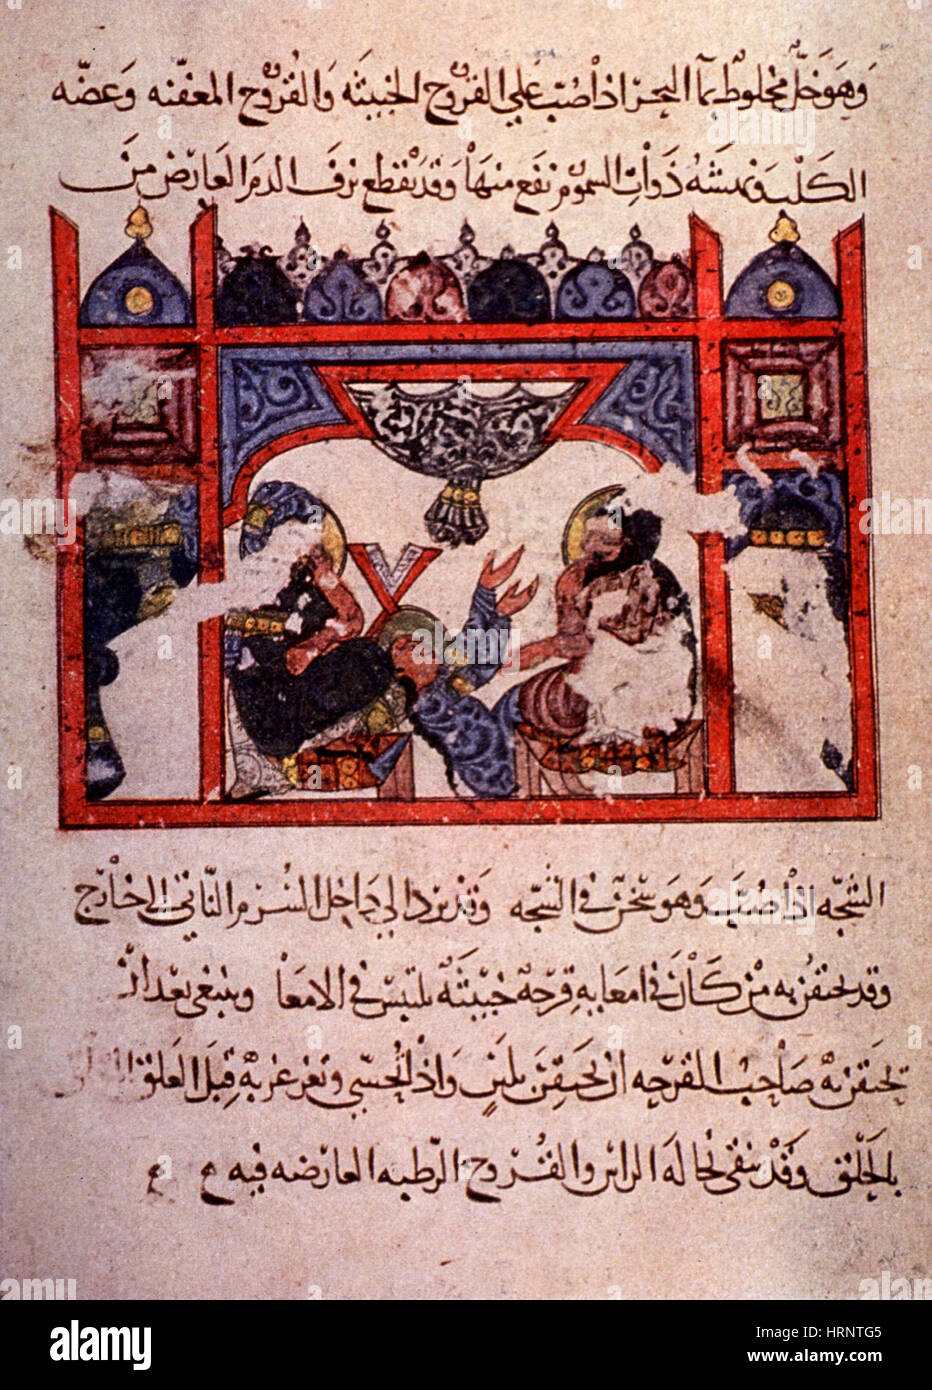 وهو خل مخلوط بماء البحر اذا صب علي القروح الخبيثه والقروح المعفنه وعضه
الكلب ونهشه ذوات السموم نفع منها وقد يقطع نزف الدم العارض من
الشجه اذا صب وهو سخن في الشجه وقد يرد الي داخل السرم الناتي الي خارج
وقد يحتقن به من كان في امعايه قرحه خبيثه تلتبس في الامعا وينبغي بعد ان
تحتقن به صاحب القرحه ان يحتقن بلبن واذا تحسي وتغرغر به قتل العلق
بالحلق وقد ينقي نخاله الراس والقروح الرطبه العارضه فيه
alamy stock photo
Image ID: HRNTG5
www.alamy.com